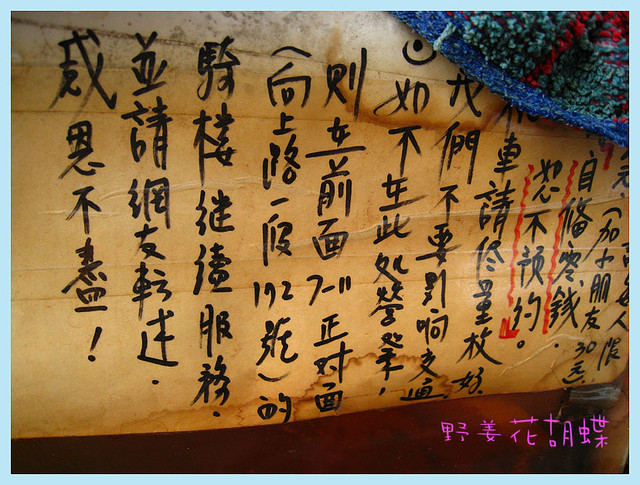 元(加小朋友30元.
自備零錢.
恕不預約。
車請尽量放好
我們不要影响交通.
如不在此处營業,
則在前面7-11正对面
(向上路一段192號)的
騎楼继續服務.
並請網友転述.
感恩不盡!
野姜花胡蝶